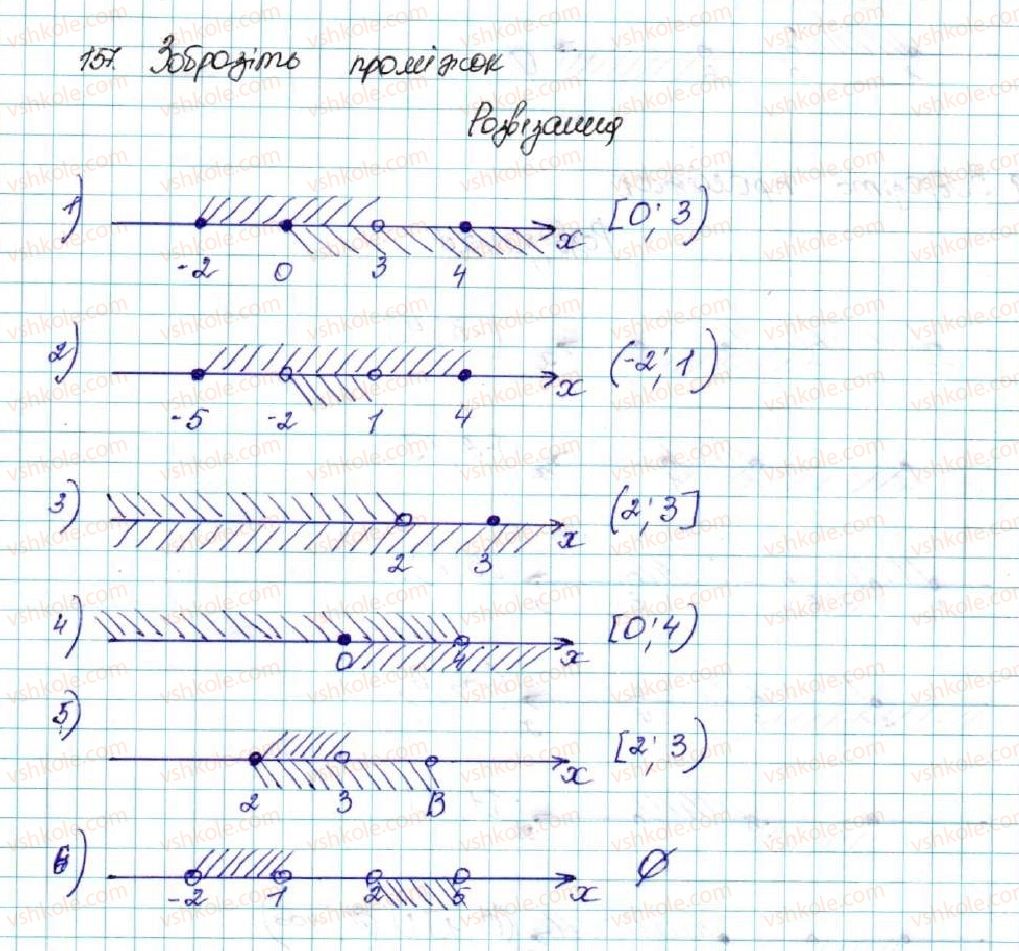 157. Зобразіть проміжок
Розвізання
1) -2 0 3 4 x [0; 3)
2) -5 -2 1 4 x (-2; 1)
3) 2 3 x (2; 3]
4) 0 4 x [0; 4)
5) 2 3 В x [2; 3)
6) -2 1 2 5 x Ø